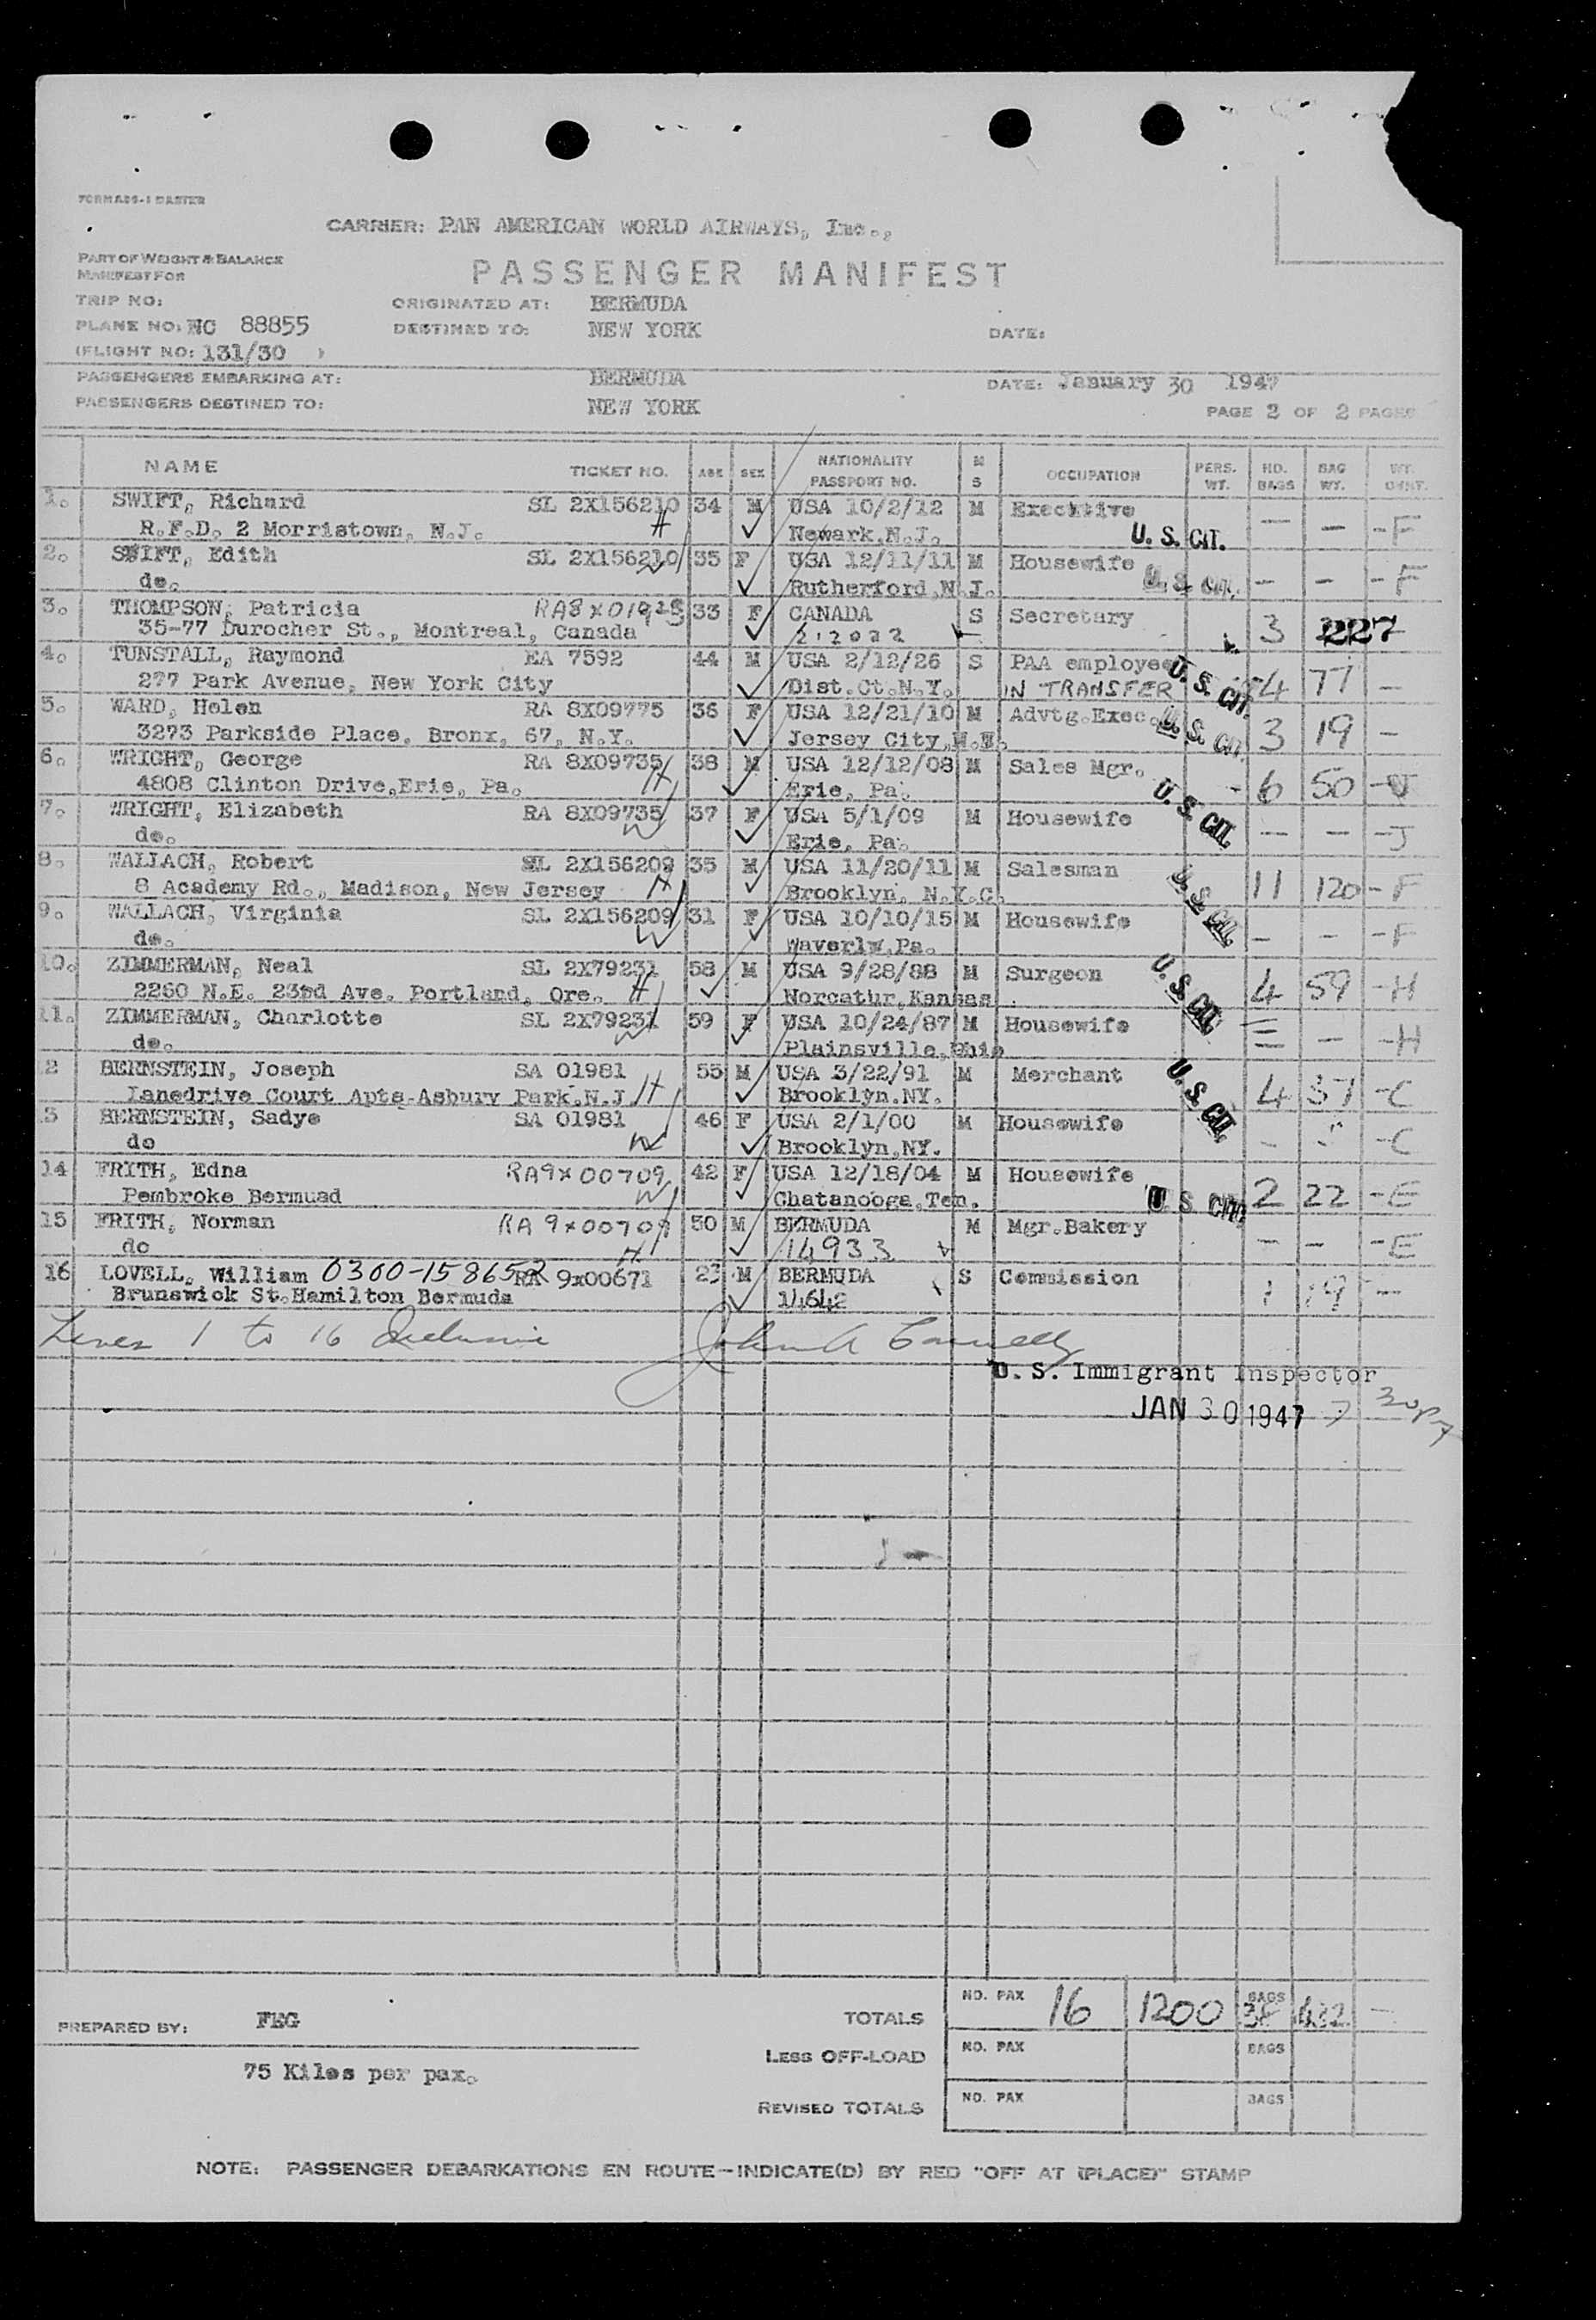 FORM ABS-1 MASTER
CARRIER: PAN AMERICAN WORLD AIRWAYS, Inc.,
PART OF WEIGHT & BALANCE
MANIFEST FOR
PASSENGER MANIFEST
TRIP NO:
ORIGINATED AT: BERMUDA
PLANE NO: NC 88855
DESTINED TO: NEW YORK
DATE:
(FLIGHT NO: 131/30 )
PASSENGERS EMBARKING AT: BERMUDA
DATE: January 30 1947
PASSENGERS DESTINED TO: NEW YORK
PAGE 2 OF 2 PAGES
NAME TICKET NO. AGE SEX NATIONALITY PASSPORT NO. M S OCCUPATION PERS. WT. NO. BAGS BAG WT. WT.
1. SWIFT, Richard SL 2X156210 34 M USA 10/2/12 M Executive
R.F.D. 2 Morristown, N.J. H Newark.N.J. U. S. CIT. — — -F
2. SWIFT, Edith SL 2X156210 35 F USA 12/11/11 M Housewife
do. W Rutherford.N.J. U. S. CIT. — — -F
3. THOMPSON, Patricia RA8X01923 33 F CANADA S Secretary
35-77 Durocher St., Montreal, Canada 3 227
4. TUNSTALL, Raymond EA 7592 44 M USA 2/12/26 S PAA employee
277 Park Avenue, New York City Dist.Ct.N.Y. IN TRANSFER U. S. CIT. 4 77 —
5. WARD, Helen RA 8X09775 36 F USA 12/21/10 M Advtg.Exec.
3273 Parkside Place, Bronx, 67, N.Y. Jersey City. U. S. CIT. 3 19 —
6. WRIGHT, George RA 8X09735 38 M USA 12/12/08 M Sales Mgr.
4808 Clinton Drive,Erie, Pa. H Erie, Pa. 6 50 -J
7. WRIGHT, Elizabeth RA 8X09735 37 F USA 5/1/09 M Housewife
do. W Erie, Pa. U. S. CIT. — — -J
8. WALLACH, Robert SL 2X156209 35 M USA 11/20/11 M Salesman
8 Academy Rd., Madison, New Jersey H Brooklyn, N.Y.C. 11 120 -F
9. WALLACH, Virginia SL 2X156209 31 F USA 10/10/15 M Housewife
do. W Waverly,Pa. U. S. CIT. — — -F
10. ZIMMERMAN, Neal SL 2X79231 58 M USA 9/28/88 M Surgeon
2260 N.E. 23rd Ave. Portland, Ore. H Norcatur,Kansas 4 59 -H
11. ZIMMERMAN, Charlotte SL 2X79231 59 F USA 10/24/87 M Housewife
do. W Plainsville,Ohio U. S. CIT. — — -H
2 BERNSTEIN, Joseph SA 01981 55 M USA 3/22/91 M Merchant
Lanedrive Court Apts-Asbury Park.N.J. H Brooklyn.NY. 4 37 -C
3 BERNSTEIN, Sadye SA 01981 46 F USA 2/1/00 M Housewife
do W Brooklyn.NY. U. S. CIT. -C
14 FRITH, Edna RA9X00709 42 F USA 12/18/04 M Housewife
Pembroke Bermuad W Chatanooga,Ten. U. S. CIT. 2 22 -E
15 FRITH, Norman RA 9X00709 50 M BERMUDA M Mgr.Bakery
do H 14933 — — -E
16 LOVELL, William 0300-158652 RA 9x00671 23 M BERMUDA S Commission
Brunswick St.Hamilton Bermuda 14642 1 19 —
Lines 1 to 16 Inclusive
U. S. Immigrant Inspector
JAN 30 1947
TOTALS NO. PAX 16 1200 BAGS 38 432 —
PREPARED BY: FEG
LESS OFF-LOAD NO. PAX BAGS
75 Kilos per pax.
REVISED TOTALS NO. PAX BAGS
NOTE: PASSENGER DEBARKATIONS EN ROUTE—INDICATE(D) BY RED "OFF AT (PLACE)" STAMP